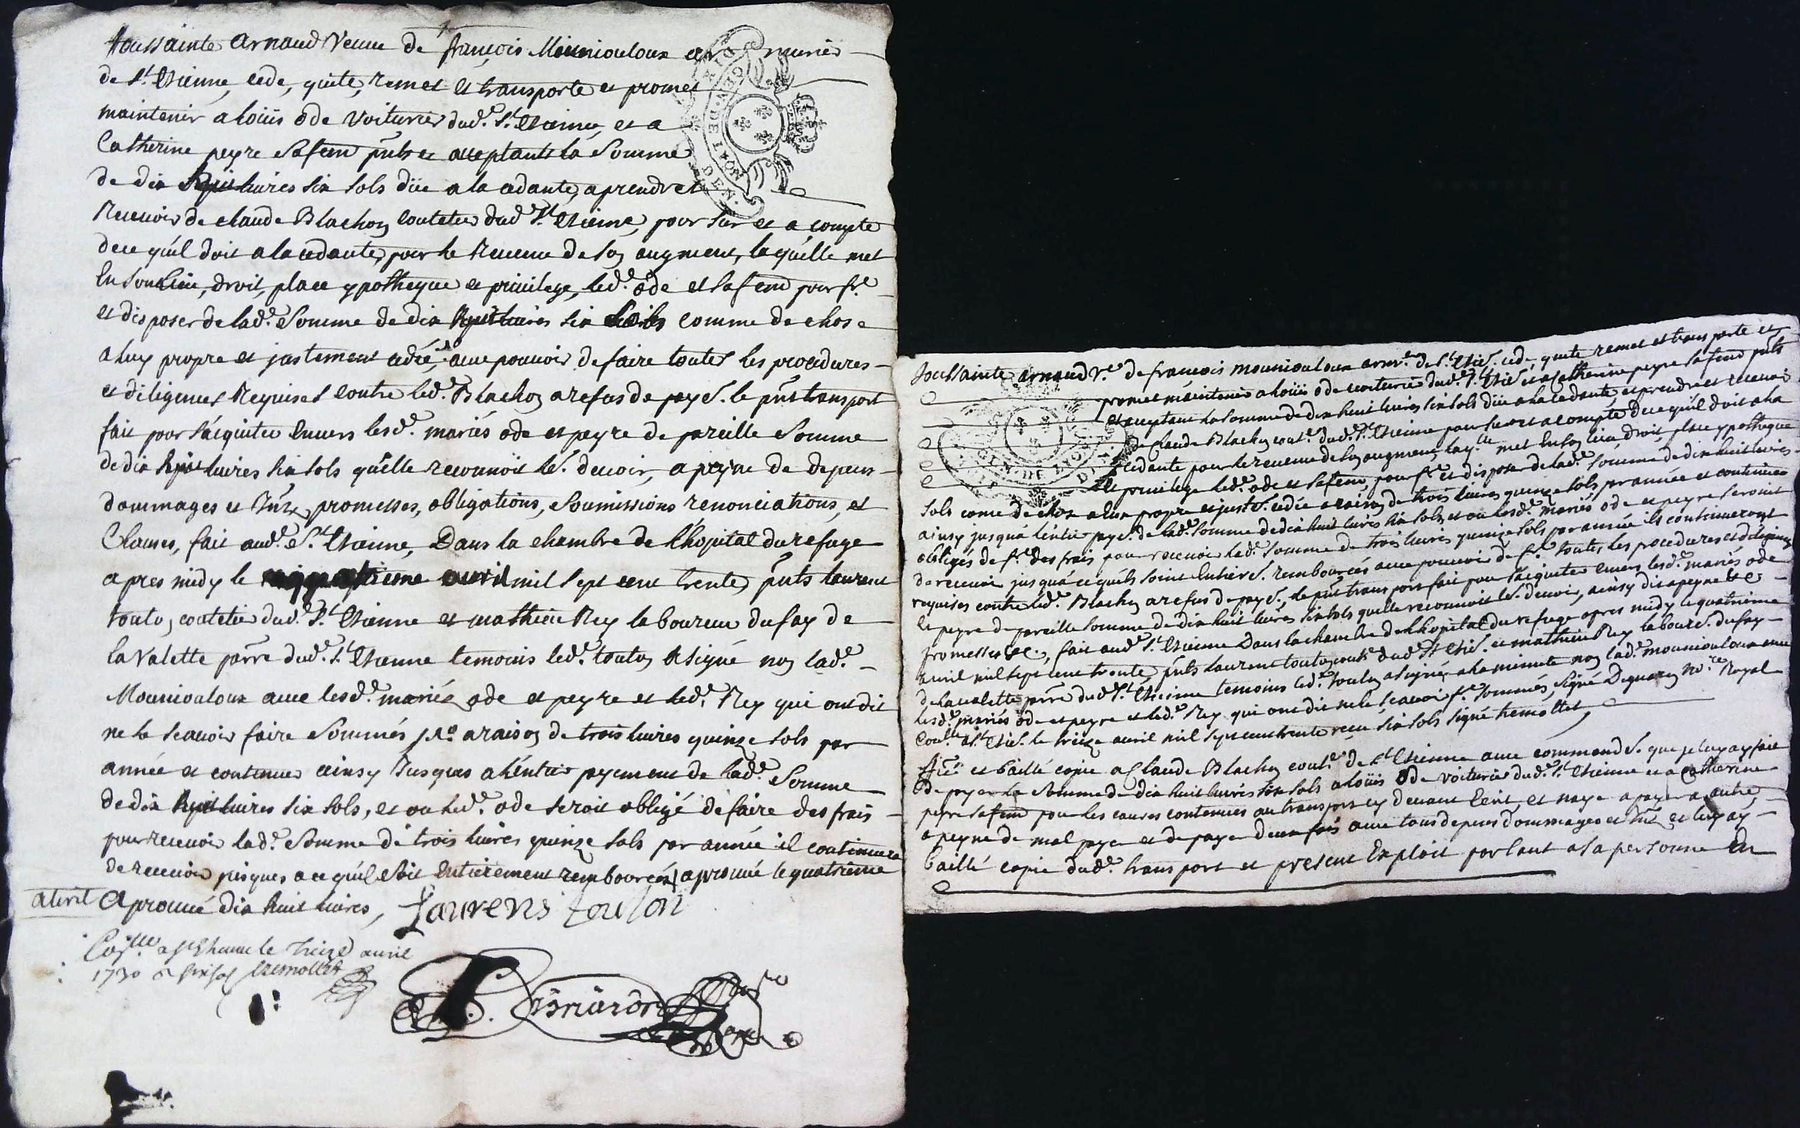 Toussainte arnaud veuve de françois Mouniouloux armurier
de St. Etienne, cede, quite, remet et transporte et promet
maintenir a loüis ode voiturier dud. St. Etienne, et a
Catherine peyre sa fem pnts et acceptants la Somme
de dix huit livres six sols düe a la cedante, a prendre et
recevoir de claude Blachon coutelier dud. St. Etienne, pour sur et a compte
de ce qu'il doit a la cedante, pour le revenu de son augment, laquelle met
en son lieu, droit, place ypotheque et privilege, led. ode et sa fem pour fe.
et disposer de lad. Somme de dix huit livres six sols comme de chose
a luy propre et justement cedée, avec pouvoir de faire toutes les procedures
et diligences requises contre led. Blachon a refus de paye. le pnt transport
fait pour s'aiquiter envers lesd. mariés ode et peyre de pareille Somme
de dix huit livres six sols qu'elle reconnoit le. devoir, a peyne de depens
dommages et Intz, promesses, obligations, soumissions renonciations, et
Clauses, fait aud. St. Etienne, Dans la chambre de l'hopital du refuge
apres midy le avril mil sept cent trente, pnts laurent
toulon coutelier dud. St. Etienne et mathieu Rey laboureur du fay de
la valette parre dud. St. Etienne temoins led. toulon a signé non lad.
Mouniouloux avec lesd. mariés ode et peyre et led. Rey qui ont dit
ne le scavoir faire sommés a raison de trois livres quinze sols par
année et continuer ainsy Jusques a l'entier payement de lad. Somme
de dix huit livres six sols, et ou led. ode seroit obligé de faire des frais
pour recevoir lad. Somme de trois livres quinze sols par année il continuera
de recevoir jusques a ce qu'il soit entierement remboursé aprouvé le quatrieme
avril aprouvé dix huit livres, Laurens Toulon
Conlle. a St Etienne le treize avril
1730 six sols tremollet
Toussainte arnaud ve. de françois mouniouloux armr. de St. Etie. cede, quite remet et transporte et
promet maintenir a loüis ode voiturier dud. St. Etie. et a Catherine peyre sa fem pnts
et acceptant la somme de dix huit livres six sols düe a la cedante, a prendre et recevoir
de Claude Blachon cout. dud. St. Etienne pour sur et a compte de ce qu'il doit a la
cedante pour le revenu de son augment, laqlle met en son lieu droit, place ypotheque
et privilege led. ode et sa fem, pour fe. et disposer de lad. somme de dix huit livres
sols come de chose a luy propre et just. cedée a raison de trois livres quinze sols par année et continuer
ainsy jusqua l'entier paye. de lad. somme de dix huit livres six sols, et ou lesd. mariés ode et peyre seroint
obligés de fe. des frais pour recevoir lad. Somme de trois livres quinze sols par année ils continueront
de recevoir jusqu'a ce qu'ils soint entiere. remboursés avec pouvoir de fe. toutes les procedures et diligences
requises contre led. Blachon a refus de paye. le pnt transport fait pour s'aiquiter envers lesd. mariés ode
et peyre de pareille somme de dix huit livres six sols qu'elle reconnoit le. devoir, ainsy dit a peyne &c
promesses &c, fait aud. St. Etienne Dans la chambre de l'hopital du refuge apres midy le quatrieme
avril mil sept cent trente, pnts laurent toulon dud. St. Etie. et mathieu Rey labour. du fay
de la valette parre dud. St. Etienne temoins led. toulon a signé a la minute non lad. mouniouloux avec
lesd. mariés ode et peyre et led. Rey qui ont dit ne le scavoir fe. sommés, signé nore. Royal
Conlle a St. Etie. le treize avril mil sept cent trente reçu six sols signé tremollet,
et baillé copie a Claude Blachon cout. de St. Etienne avec commande. que je luy ay fait
de payer la somme de dix huit livres six sols a loüis ode voiturier dud. St. Etienne et a Catherine
peyre sa fem pour les causes contenues au transport cy devant ecrit, et non a payer a autre,
a peyne de mal payer et de payer deux fois avec tous depens dommages et Intz et luy ay
baillé copie dud. transport et present Exploit parlant a sa personne En